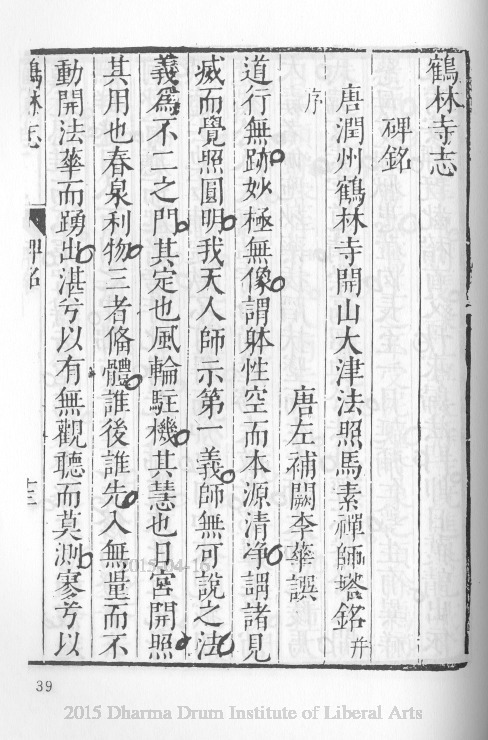 鶴林寺志
碑銘
唐潤州鶴林寺開山大津法照馬素禪師塔銘并
序
唐左補闕李華譔
道行無跡妙極無像謂躰性空而本源清淨謂諸見
滅而覺照圓明我天人師示第一義師無可說之法
義爲不二之門其定也風輪駐機其慧也日宮開照
其用也春泉利物三者俻體誰後誰先人無量而不
動開法華而踴出湛兮以有無觀聽而莫測寥兮以
鶴林寺志
碑銘
十三
39
2015-04-16
2015 Dharma Drum Institute of Liberal Arts